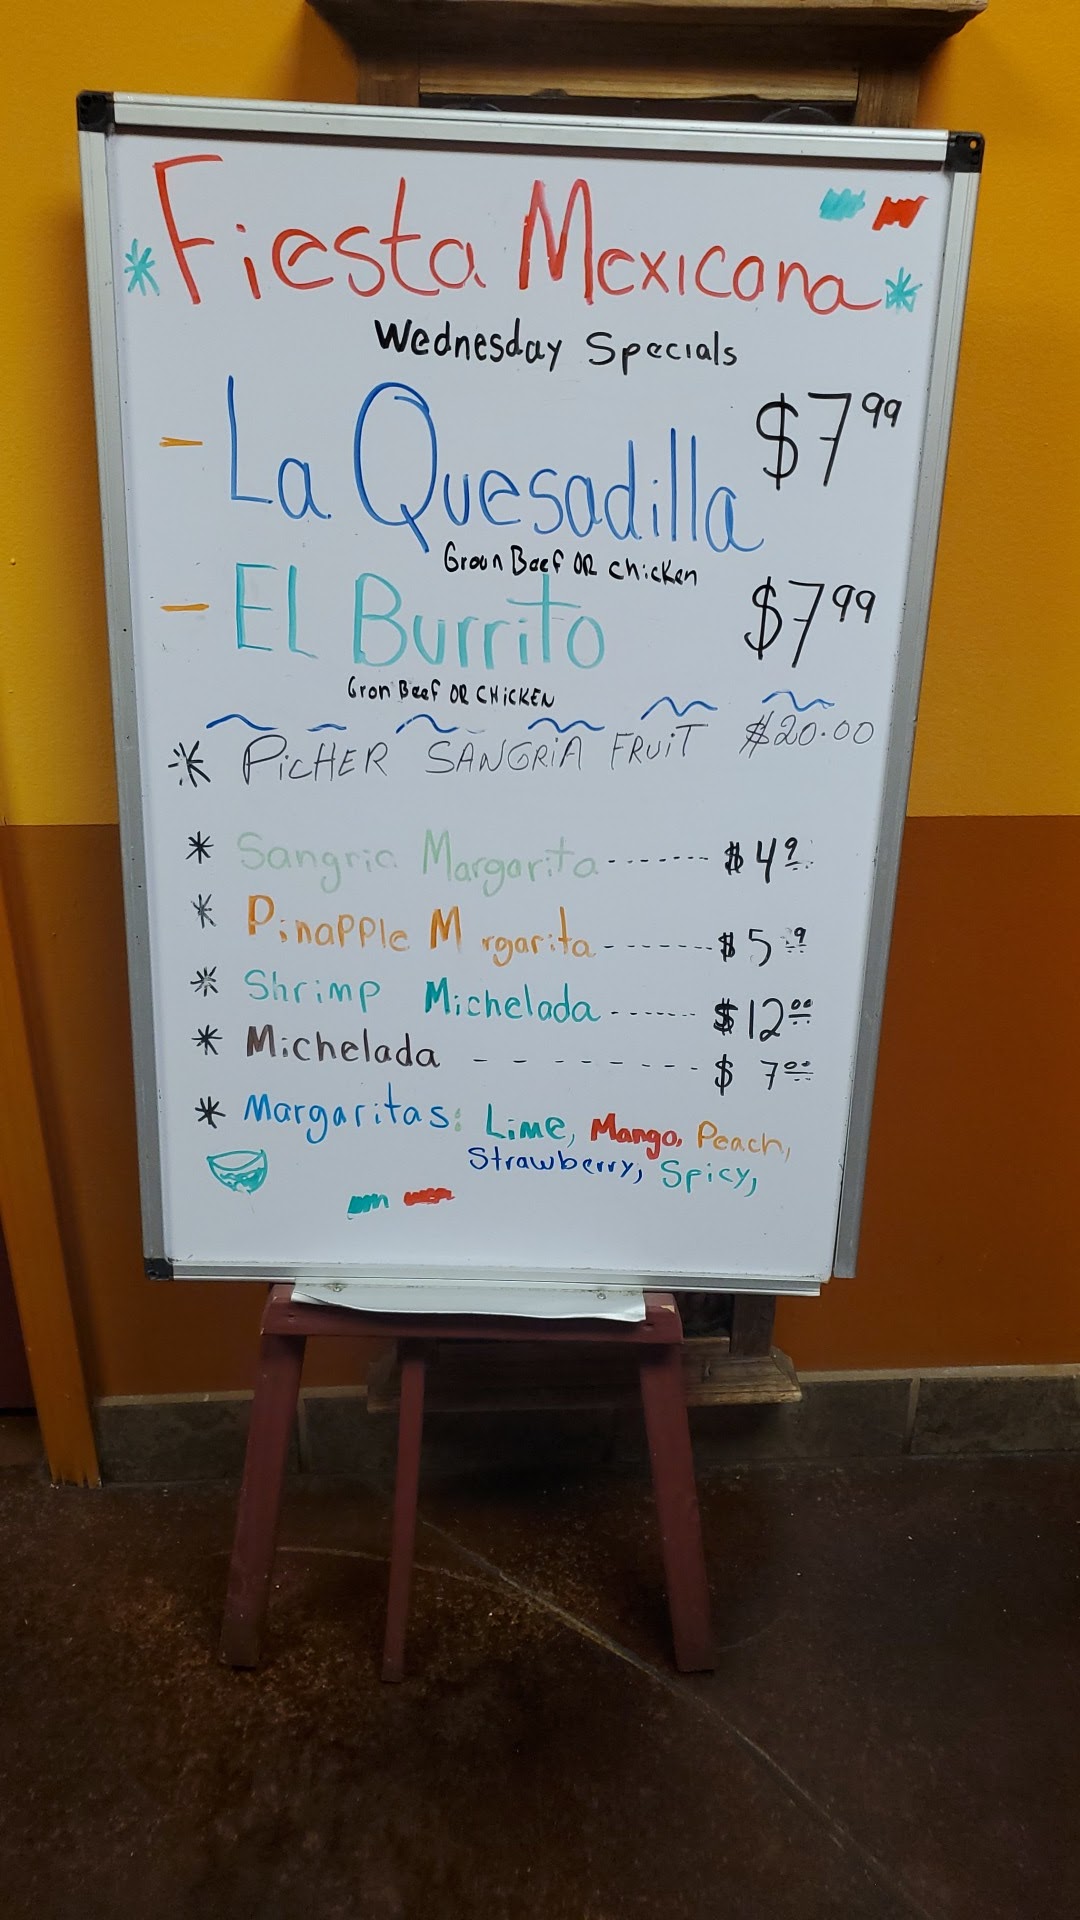 Fiesta Mexicana
Wednesday Specials
- La Quesadilla $7.99
Groun Beef OR chicken
- EL Burrito $7.99
Gron Beef OR CHICKEN
* PiCHER SANGRiA FRUiT $20.00
* Sangria Margarita ------- $4 9
* Pinapple M rgarita ------- $5 .9
* Shrimp Michelada ------ $12.00
* Michelada - - - - - - --- $ 7.00
* Margaritas: Lime, Mango, Peach,
Strawberry, Spicy,